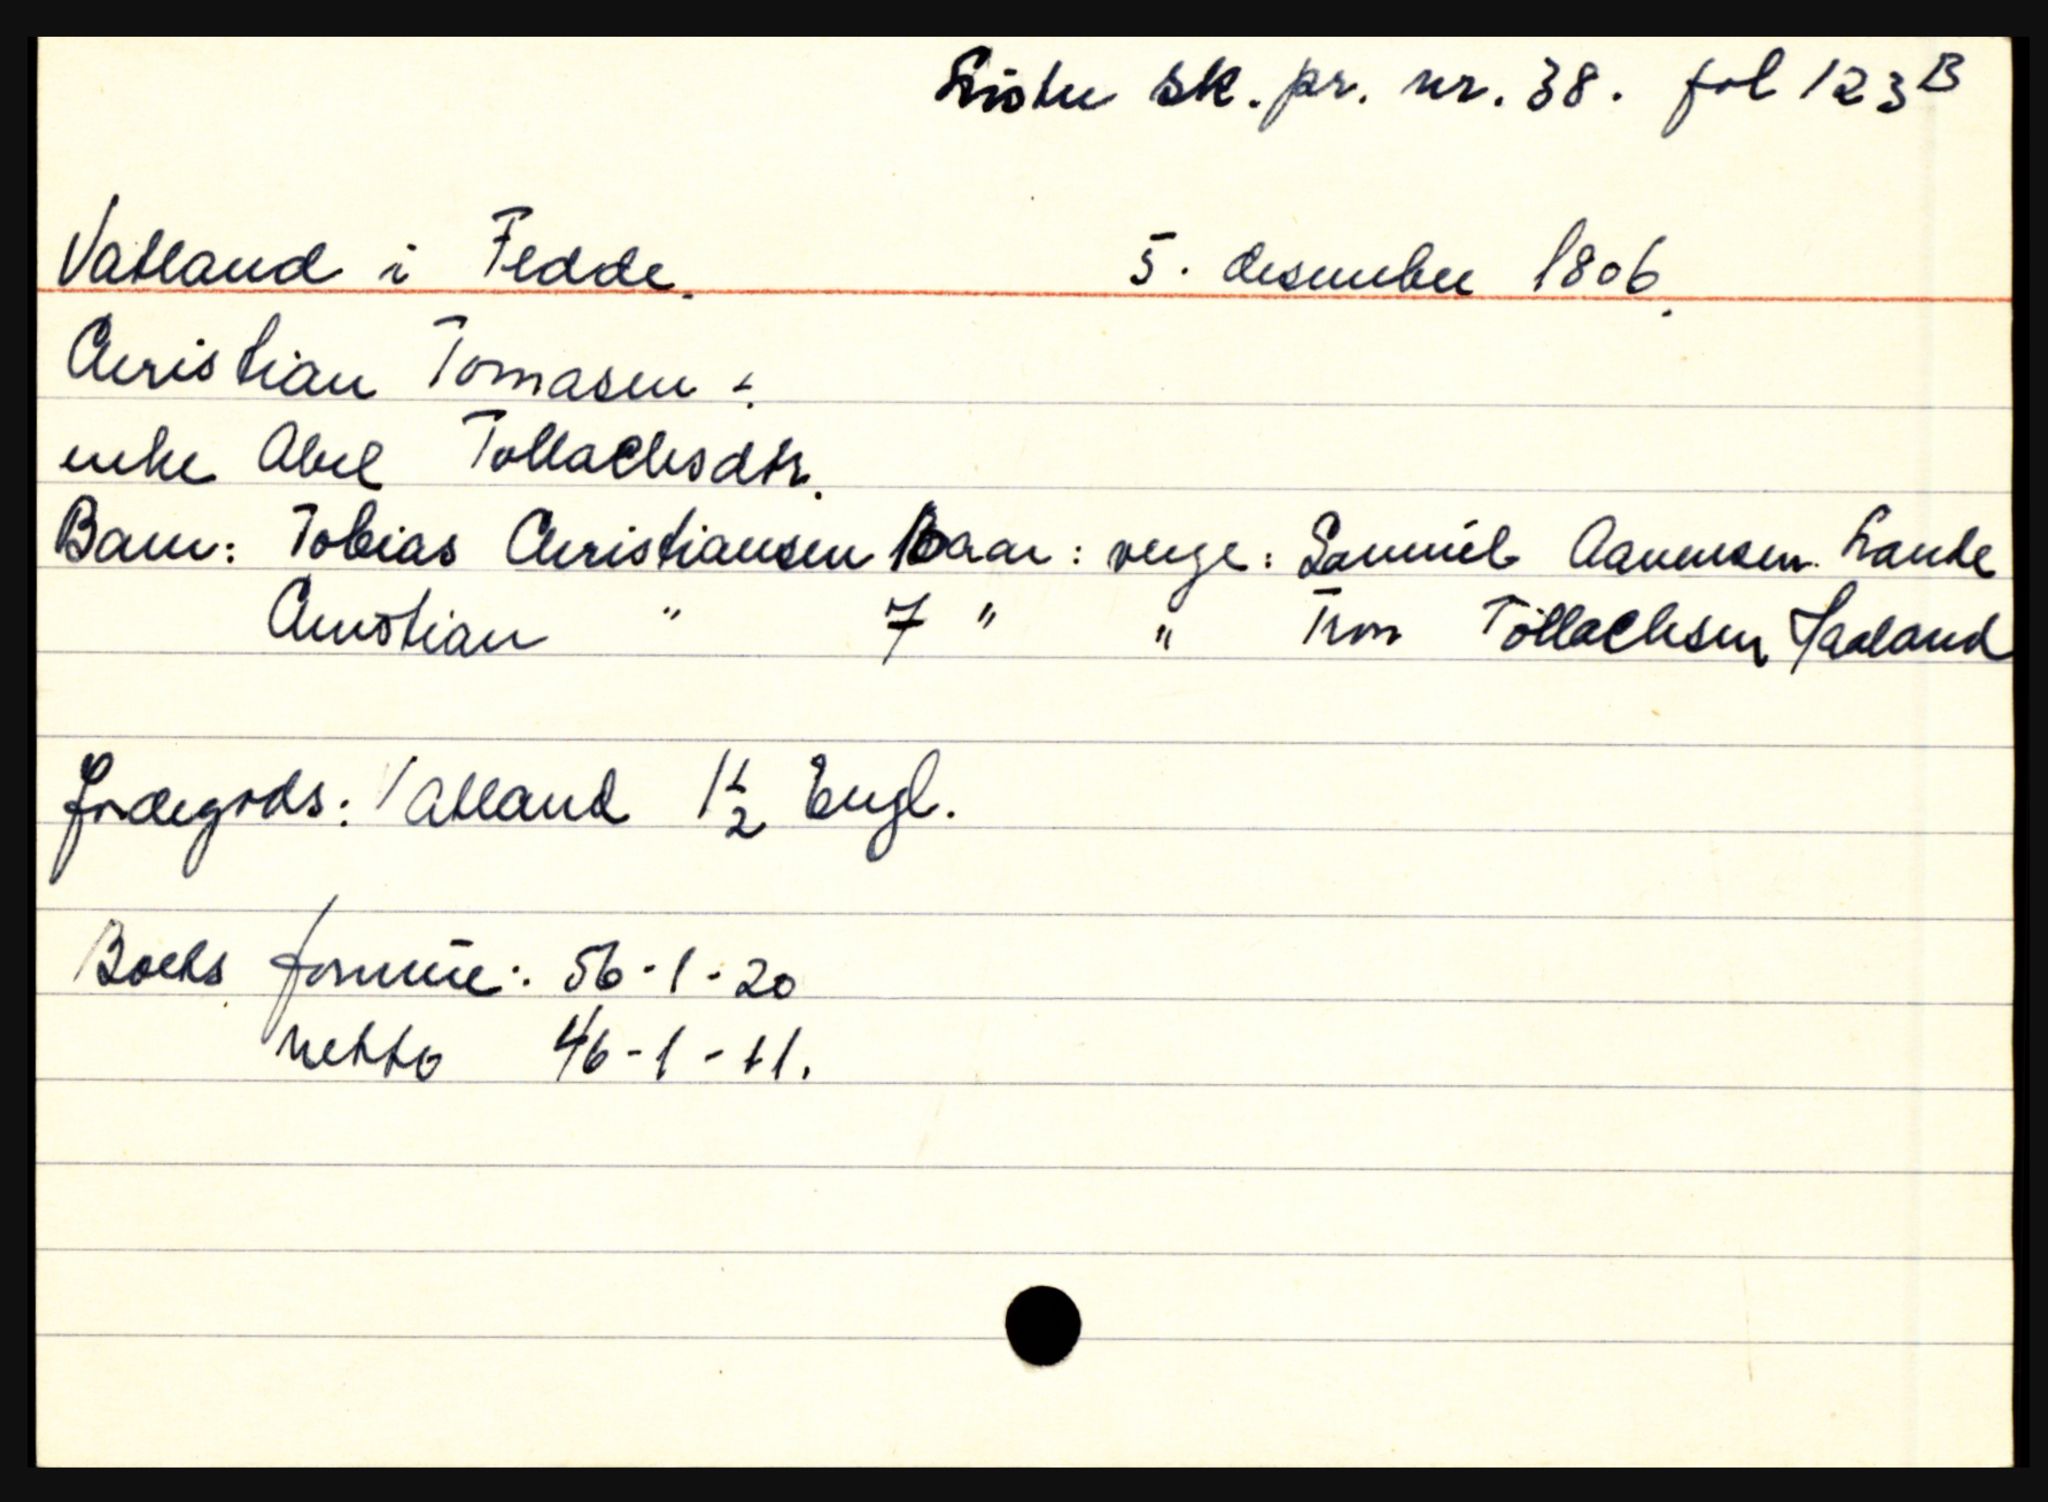 Lister sk. pr. nr. 38. fol 123B
Vatland i Fedde. 5. desember 1806.
Christian Tomasen ÷
enke Abel Tollachsdtr.
Barn: Tobias Christiansen 10 aar: verge: Samuel Aanensen Lande
Christian " 7 " " Tron Tollachsen Haaland
Jordegods: Vatland 1½ Engl.
Boets formue: 56-1-20
netto 46-1-11.